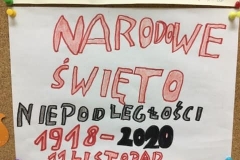 NARODOWE
ŚWIĘTO
NIEPODLEGŁOŚCI
1918-2020
11 LISTOPAD